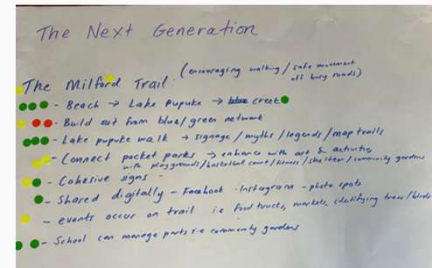 The Next Generation
The Milford Trail (encouraging walking / safe movement
off busy roads)
- Beach → Lake Pupuke → creek
- Build out from blue/green network
- Lake pupuke walk → signage / myths / legends / map trails
- Connect pocket parks → enhance with art & activities
with playgrounds / basketball court / fitness / shelter / community gardens
- Cohesive signs -
- Shared digitally - Facebook - Instagram - photo spots
- events occur on trail i.e food trucks, markets, identifying trees / birds
- School can manage parts i.e community gardens